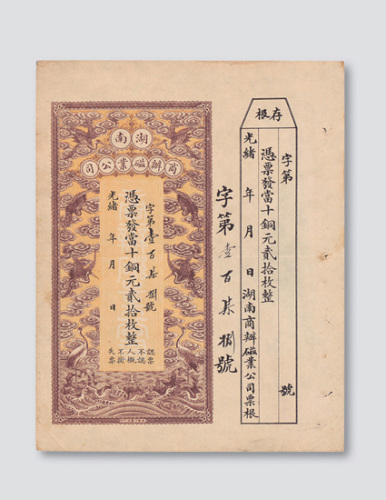 湖南
商辦磁業公司
字第壹百柒捌號
憑票發當十銅元貳拾枚整
光緒 年 月 日
認票不認人概不掛失票
字第壹百柒捌號
存根
字第 號
憑票發當十銅元貳拾枚整
光緒 年 月 日湖南商辦磁業公司票根